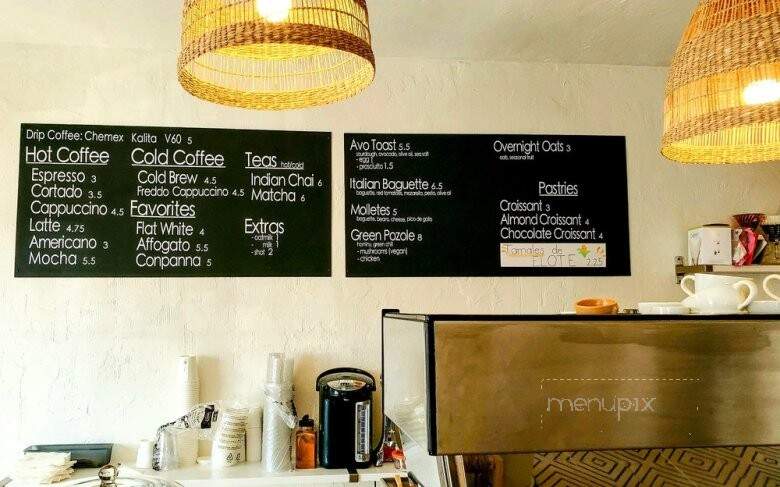 Drip Coffee: Chemex Kalita V60 5
Hot Coffee
Espresso 3
Cortado 3.5
Cappuccino 4.5
Latte 4.75
Americano 3
Mocha 5.5
Cold Coffee
Cold Brew 4.5
Freddo Cappuccino 4.5
Favorites
Flat White 4
Affogato 5.5
Conpanna 5
Teas hot/cold
Indian Chai 6
Matcha 6
Extras
- oatmilk
- milk 1
- shot 2
Avo Toast 5.5
sourdough, avocado, olive oil, sea salt
- egg 1
- prosciutto 1.5
Italian Baguette 6.5
baguette, red tomatoes, mozzarella, pesto, olive oil
Molletes 5
baguette, beans, cheese, pico de gallo
Green Pozole 8
hominy, green chili
- mushrooms (vegan)
- chicken
Overnight Oats 3
oats, seasonal fruit
Pastries
Croissant 3
Almond Croissant 4
Chocolate Croissant 4
Tamales de
ELOTE 2.25
menupix